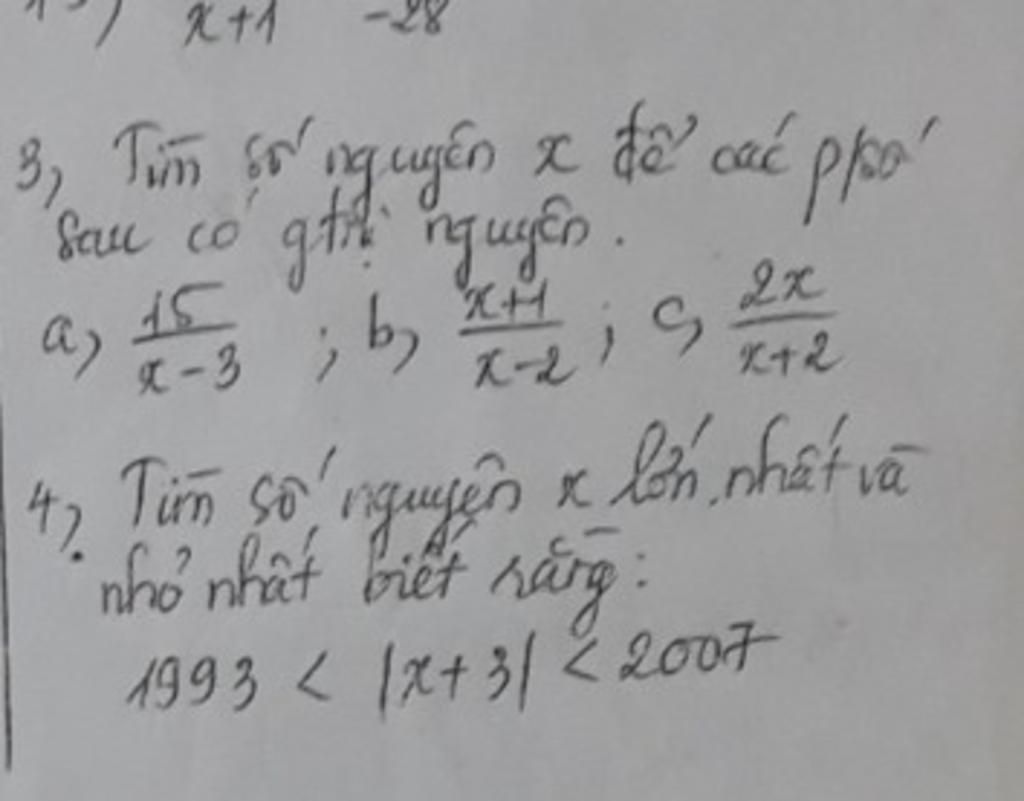 x+1 -28
3, Tìm số nguyên x để các p/số
sau có gtrị nguyên.
a, 15/x-3 ; b, x+1/x-2 ; c, 2x/x+2
4, Tìm số nguyên x lớn nhất và
nhỏ nhất biết rằng:
1993 < |x+3| < 2007